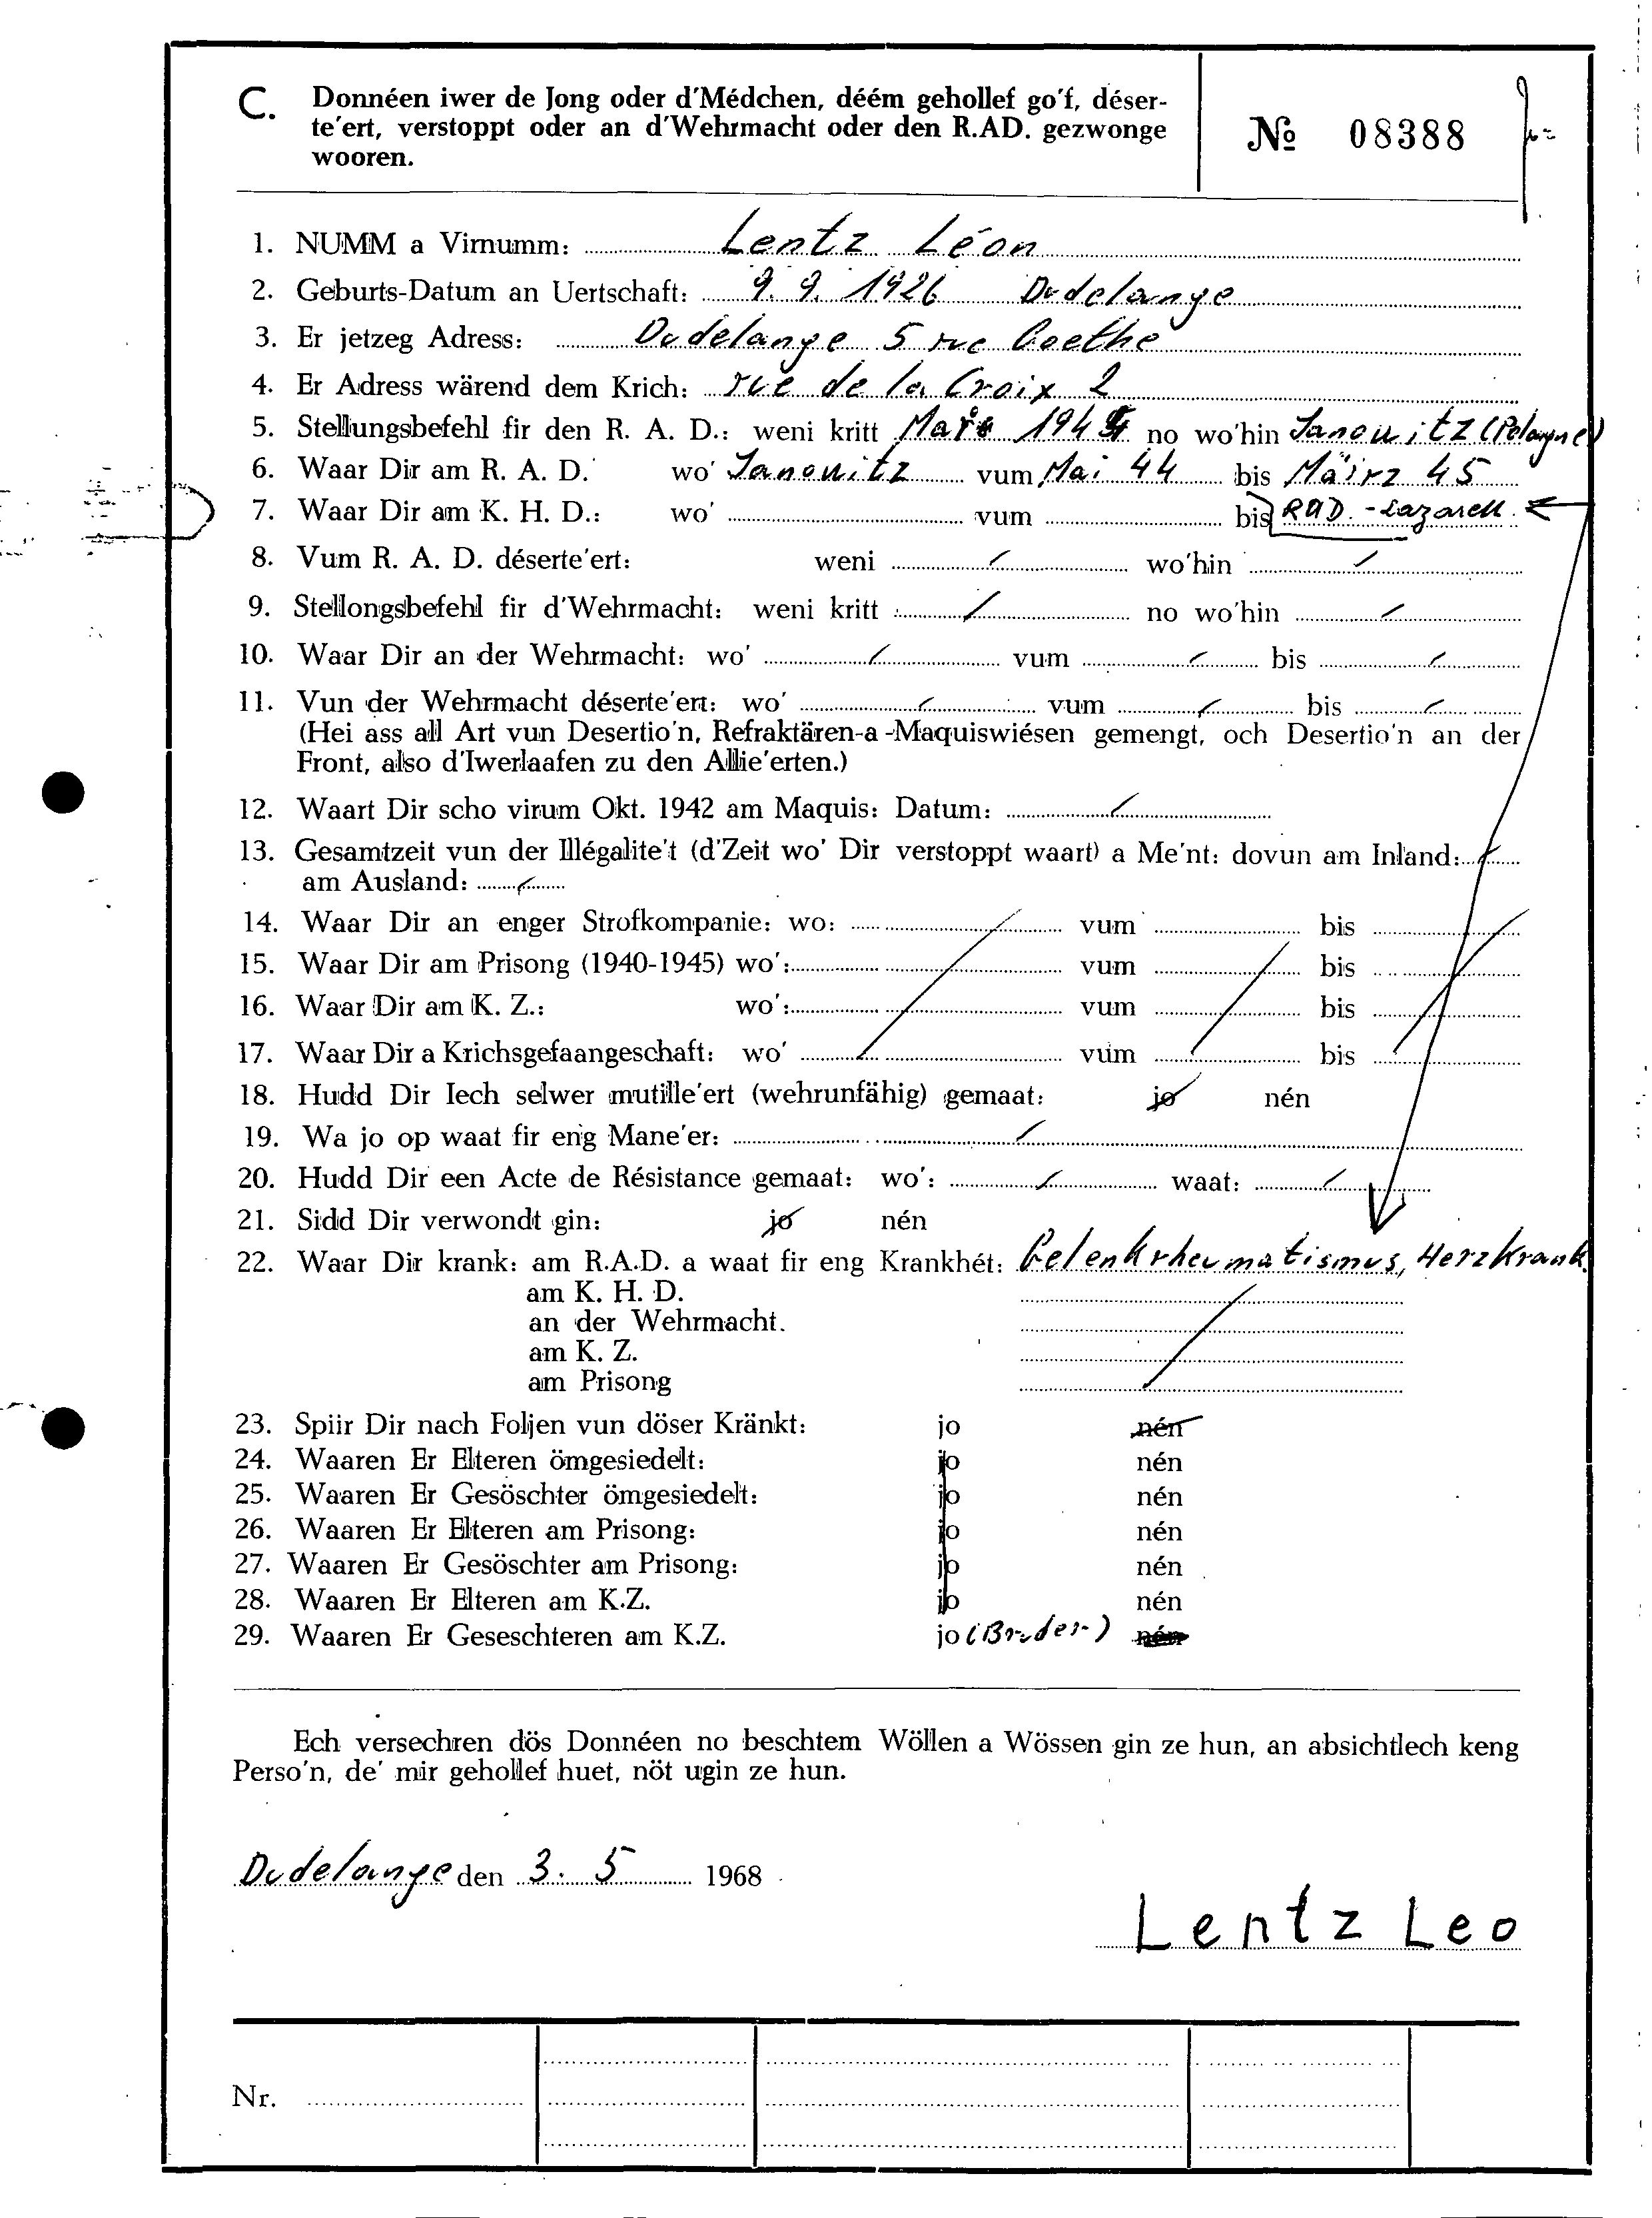 C. Donnéen iwer de Jong oder d'Médchen, déém gehollef go'f, déser-
te'ert, verstoppt oder an d'Wehrmacht oder den R.AD. gezwonge
wooren.
№ 08388
1. NUMM a Virnumm: Lentz Léon
2. Geburts-Datum an Uertschaft: 9. 9. 1926 Dudelange
3. Er jetzeg Adress: Dudelange 5 rue Goethe
4. Er Adress wärend dem Krich: rue de la Croix 2
5. Stellungsbefehl fir den R. A. D.: weni kritt 1944 no wo'hin Janowitz (Pologne)
6. Waar Dir am R. A. D. wo' Janowitz vum Mai 44 bis Määrz 45
7. Waar Dir am K. H. D.: wo' vum bis RAD.-Lazarett.
8. Vum R. A. D. déserte'ert: weni wo'hin
9. Stellongsbefehl fir d'Wehrmacht: weni kritt no wo'hin
10. Waar Dir an der Wehrmacht: wo' vum bis
11. Vun der Wehrmacht déserte'ert: wo' vum bis
(Hei ass all Art vun Desertio'n, Refraktären-a -Maquiswiésen gemengt, och Desertio'n an der
Front, also d'Iwerlaafen zu den Allie'erten.)
12. Waart Dir scho virum Okt. 1942 am Maquis: Datum:
13. Gesamtzeit vun der Illégalite't (d'Zeit wo' Dir verstoppt waart) a Me'nt: dovun am Inland:
am Ausland:
14. Waar Dir an enger Strofkompanie: wo: vum bis
15. Waar Dir am Prisong (1940-1945) wo': vum bis
16. Waar Dir am K. Z.: wo': vum bis
17. Waar Dir a Krichsgefaangeschaft: wo' vum bis
18. Hudd Dir Iech selwer mutille'ert (wehrunfähig) gemaat: jo nén
19. Wa jo op waat fir eng Mane'er:
20. Hudd Dir een Acte de Résistance gemaat: wo': waat:
21. Sidd Dir verwondt gin: jo nén
22. Waar Dir krank: am R.A.D. a waat fir eng Krankhét: Gelenkrheumatismus, Herzkrank.
am K. H. D.
an der Wehrmacht.
am K. Z.
am Prisong
23. Spiir Dir nach Foljen vun döser Kränkt: jo nén
24. Waaren Er Elteren ömgesiedelt: jo nén
25. Waaren Er Gesöschter ömgesiedelt: jo nén
26. Waaren Er Elteren am Prisong: jo nén
27. Waaren Er Gesöschter am Prisong: jo nén
28. Waaren Er Elteren am K.Z. jo nén
29. Waaren Er Geseschteren am K.Z. jo (Bruder) nén
Ech versechren dös Donnéen no beschtem Wöllen a Wössen gin ze hun, an absichtlech keng
Perso'n, de' mir gehollef huet, nöt ugin ze hun.
Dudelange den 3. 5 1968
Lentz Leo
Nr.